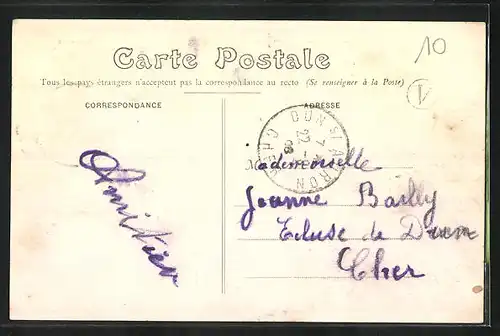 10
Carte Postale
Tous les pays étrangers n'acceptent pas la correspondance au recto (Se renseigner à la Poste)
CORRESPONDANCE
ADRESSE
DUN S/ AURON
CHER
Mademoiselle
Jeanne Bailly
Ecluse de Dun
Cher